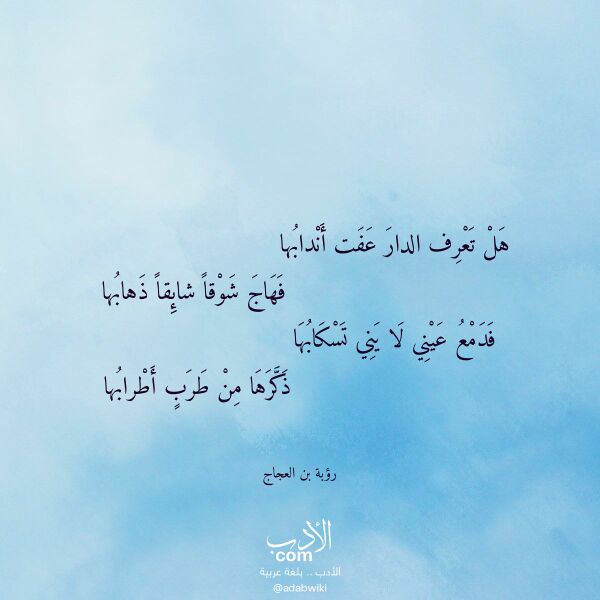 هَلْ تَعْرِف الدارَ عَفَت أَنْدابُها
فَهَاجَ شَوْقاً شايِقاً ذَهابُها
فَدَمْعُ عَيْنِي لَا يَنِي تَسْكَابُهَا
ذَكَّرَهَا مِنْ طَرَبٍ أَطْرابُها
رؤبة بن العجاج
الأدب
com
الأدب .. بلغة عربية
@adabwiki